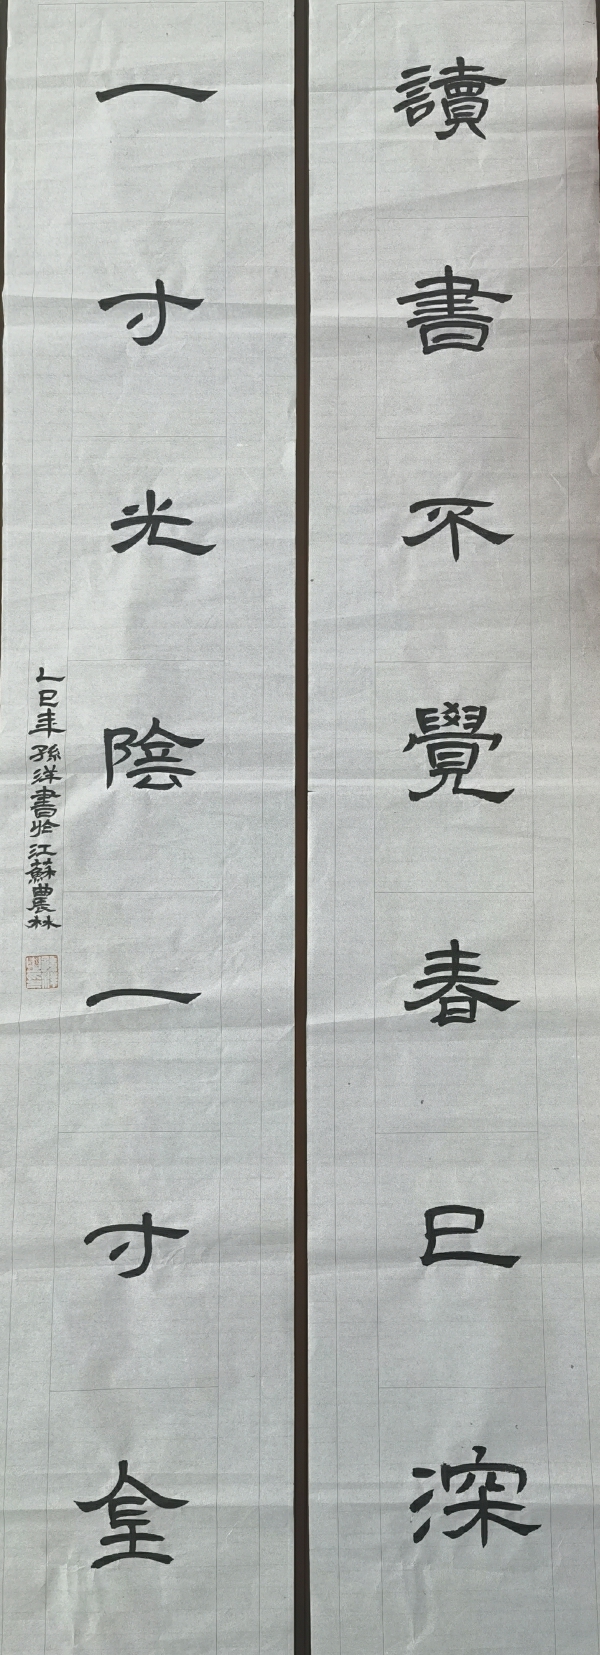 讀書不覺春已深
一寸光陰一寸金
乙巳年孫洋書於江蘇農林